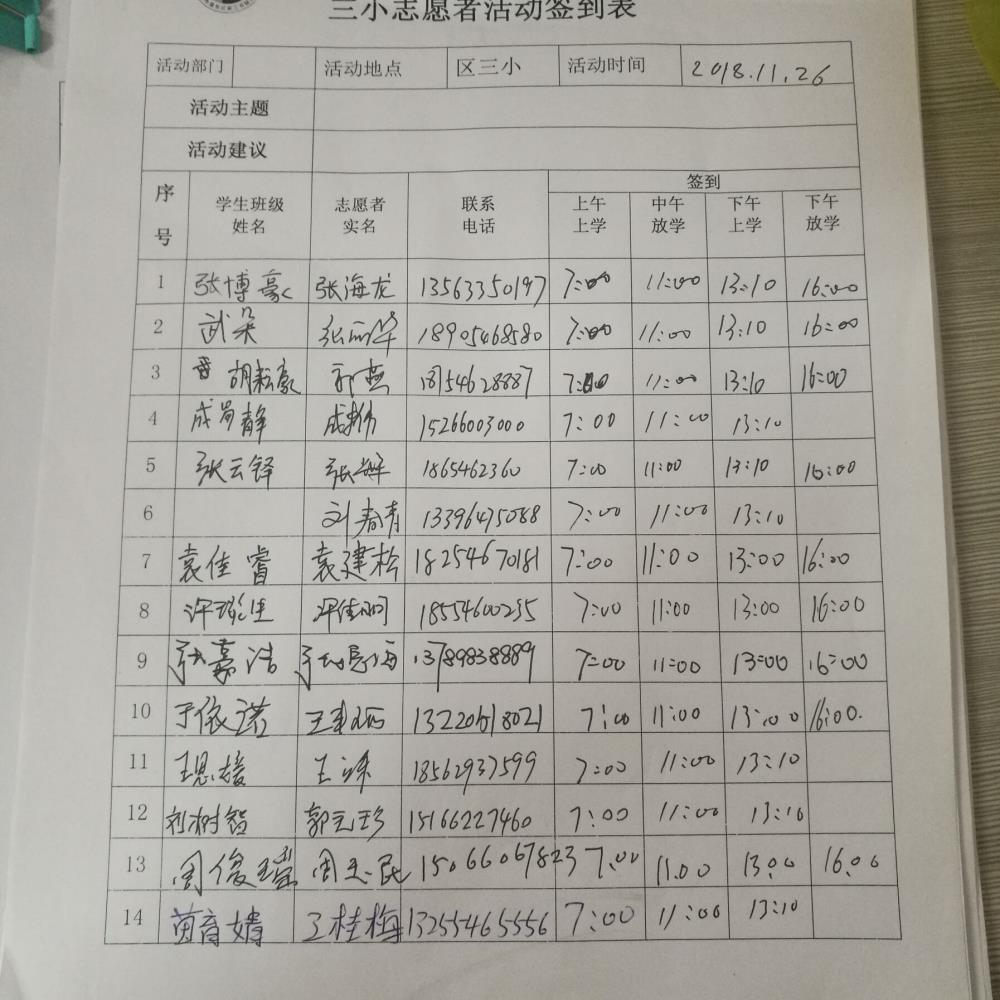 三小志愿者活动签到表
活动部门 活动地点 区三小 活动时间 2018.11.26
活动主题
活动建议
序号 学生班级姓名 志愿者实名 联系电话 签到
上午上学 中午放学 下午上学 下午放学
1 张博豪 张海龙 13563350197 7:00 11:00 13:10 16:00
2 武朵 张丽华 18905468580 7:00 11:00 13:10 16:00
3 胡耘豪 郭燕 18154628887 7:00 11:00 13:10 16:00
4 成尚静 15266003000 7:00 11:00 13:10
5 张云铎 1865462360 7:00 11:00 13:10 16:00
6 刘春青 13396475088 7:00 11:00 13:10
7 袁佳睿 袁建松 18254670181 7:00 11:00 13:00 16:00
8 18554600255 7:00 11:00 13:00 16:00
9 张嘉浩 13789838889 7:00 11:00 13:00 16:00
10 于依诺 13220618021 7:00 11:00 13:00 16:00.
11 王思媛 18562937599 7:00 11:00 13:10
12 刘树智 郭元珍 15166227460 7:00 11:00 13:10
13 周俊瑾 15066067823 7:00 11.00 13:00 16:00
14 苗育婧 王桂梅 13255465556 7:00 11:00 13:10